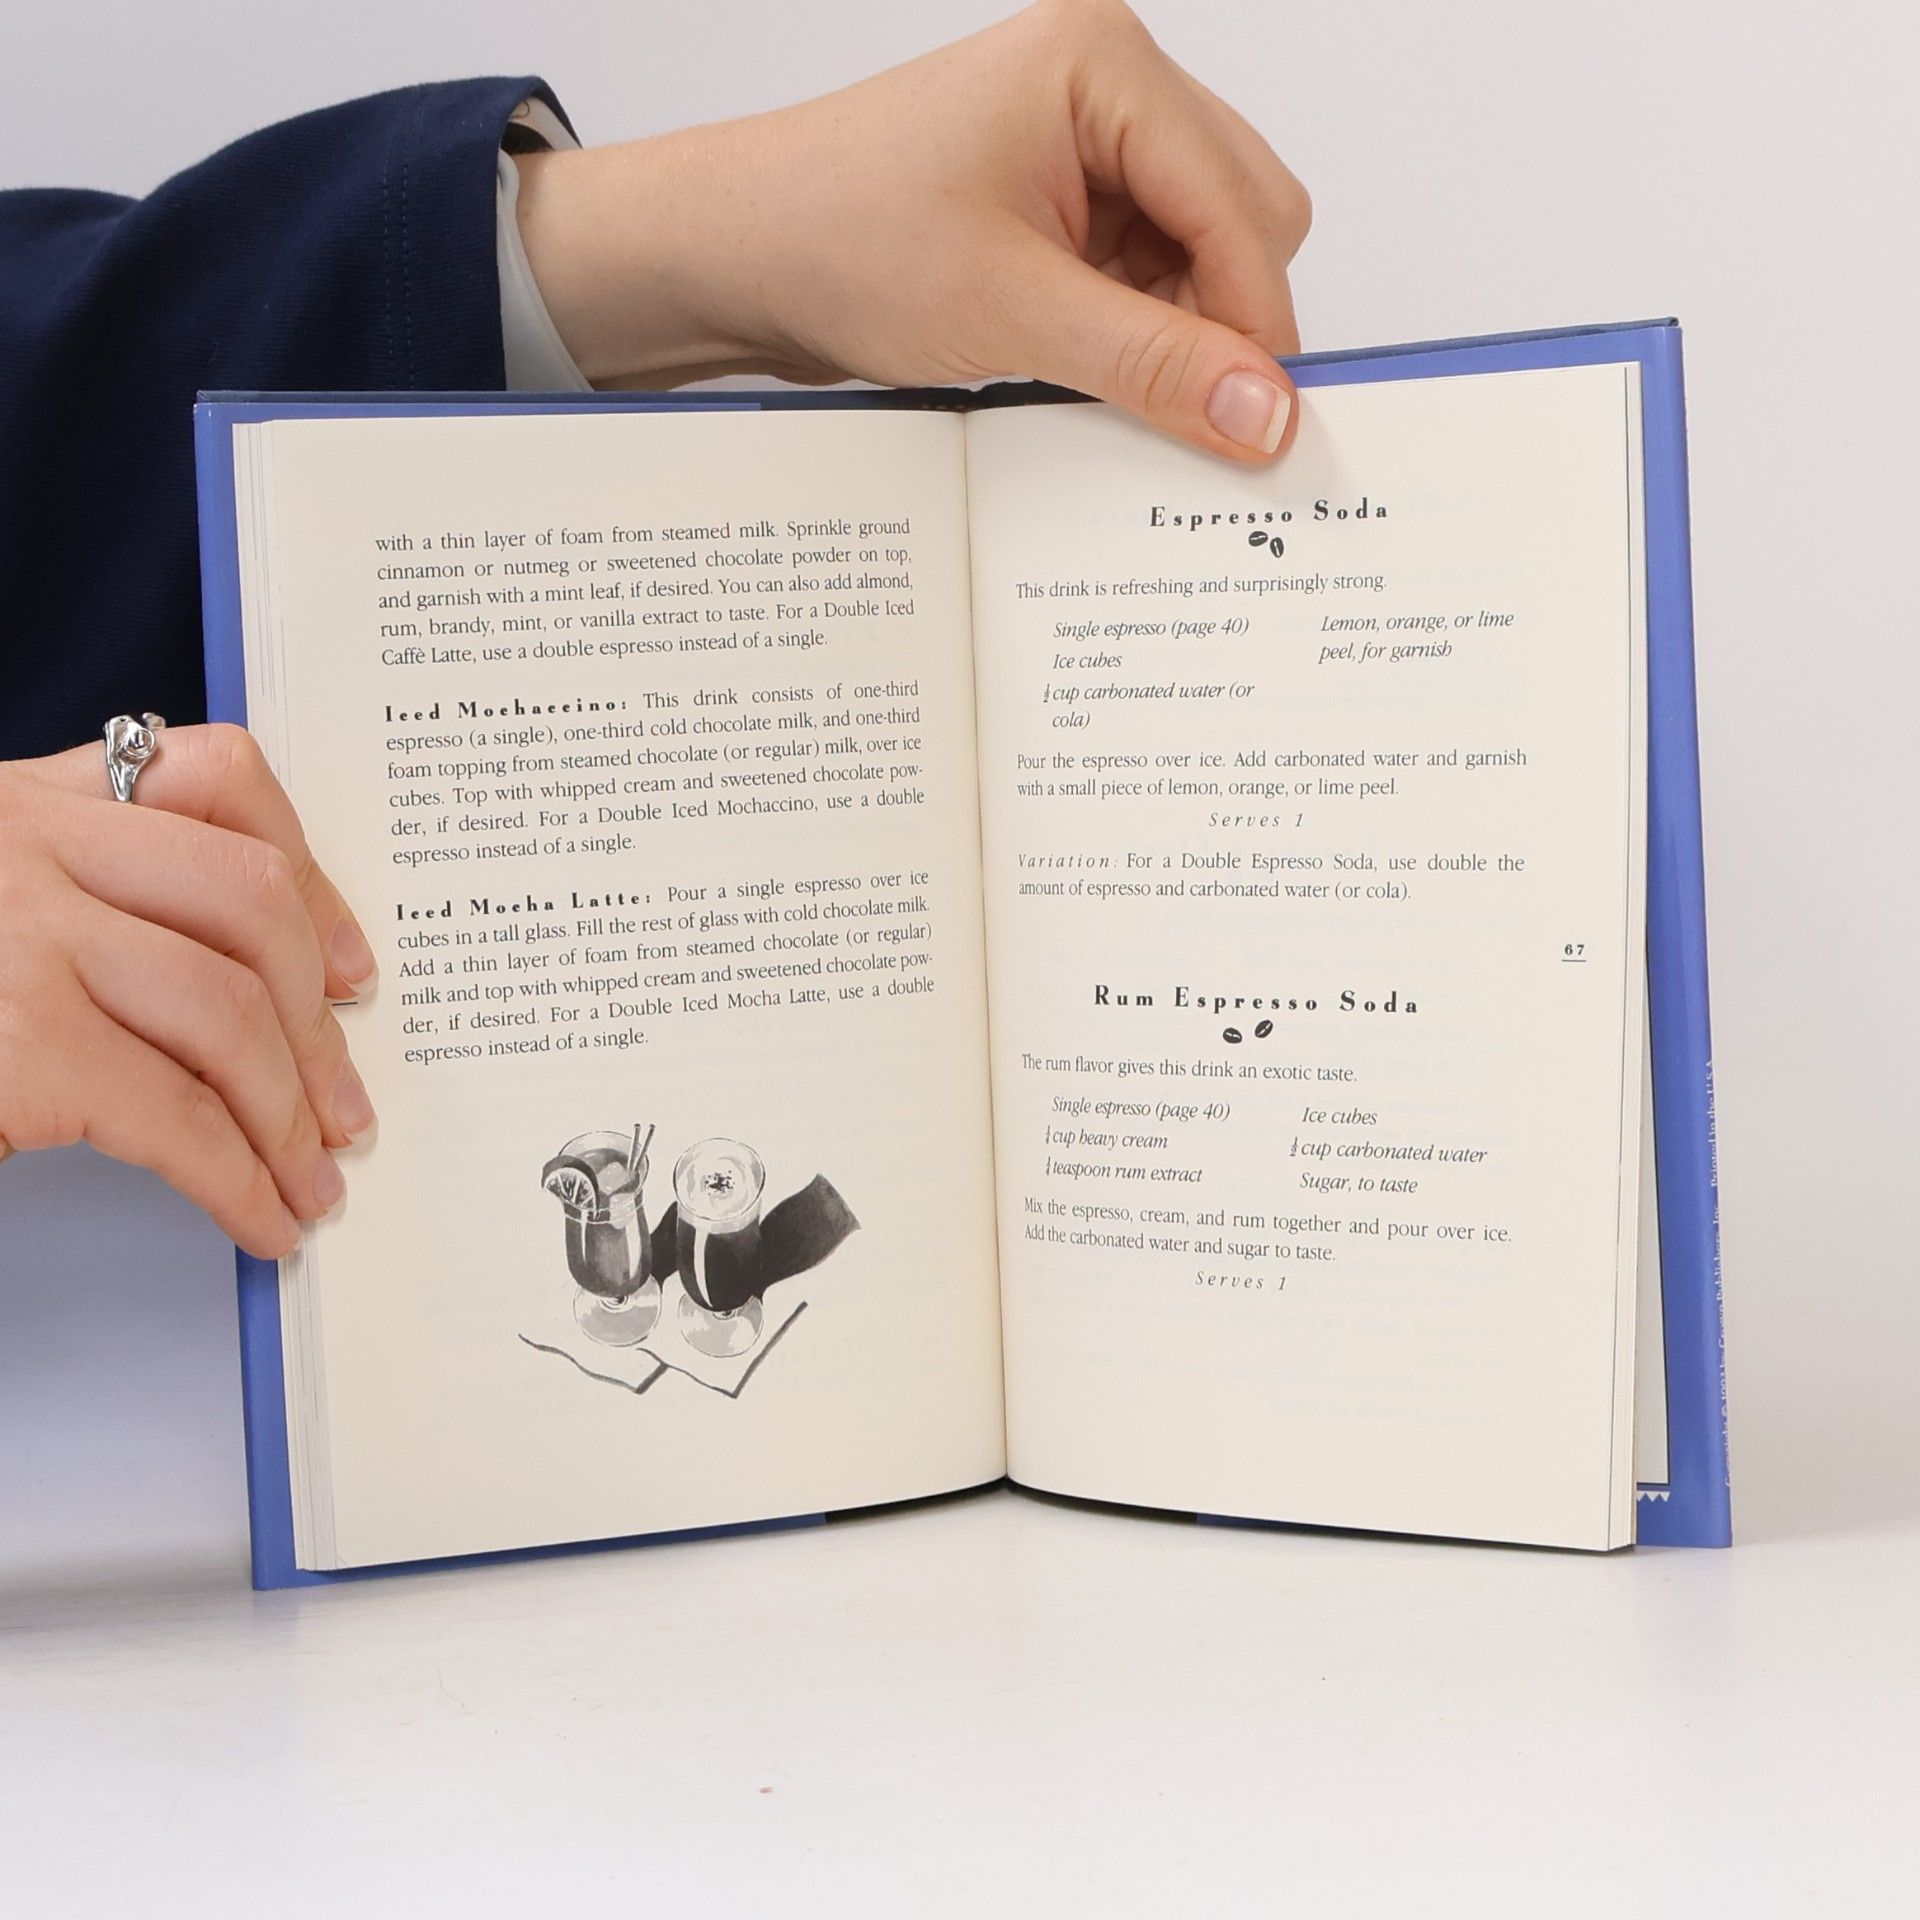 with a thin layer of foam from steamed milk. Sprinkle ground
cinnamon or nutmeg or sweetened chocolate powder on top,
and garnish with a mint leaf, if desired. You can also add almond,
rum, brandy, mint, or vanilla extract to taste. For a Double Iced
Caffè Latte, use a double espresso instead of a single.
Iced Mochaccino: This drink consists of one-third
espresso (a single), one-third cold chocolate milk, and one-third
foam topping from steamed chocolate (or regular) milk, over ice
cubes. Top with whipped cream and sweetened chocolate pow-
der, if desired. For a Double Iced Mochaccino, use a double
espresso instead of a single.
Iced Mocha Latte: Pour a single espresso over ice
cubes in a tall glass. Fill the rest of glass with cold chocolate milk.
Add a thin layer of foam from steamed chocolate (or regular)
milk and top with whipped cream and sweetened chocolate pow-
der, if desired. For a Double Iced Mocha Latte, use a double
espresso instead of a single.
Espresso Soda
This drink is refreshing and surprisingly strong.
Single espresso (page 40)
Ice cubes
½ cup carbonated water (or
cola)
Lemon, orange, or lime
peel, for garnish
Pour the espresso over ice. Add carbonated water and garnish
with a small piece of lemon, orange, or lime peel.
Serves 1
Variation: For a Double Espresso Soda, use double the
amount of espresso and carbonated water (or cola).
67
Rum Espresso Soda
The rum flavor gives this drink an exotic taste.
Single espresso (page 40)
cup heavy cream
teaspoon rum extract
Ice cubes
½ cup carbonated water
Sugar, to taste
Mix the espresso, cream, and rum together and pour over ice.
Add the carbonated water and sugar to taste.
Serves 1
Crown Publishers, Inc. Printed in the U.S.A.